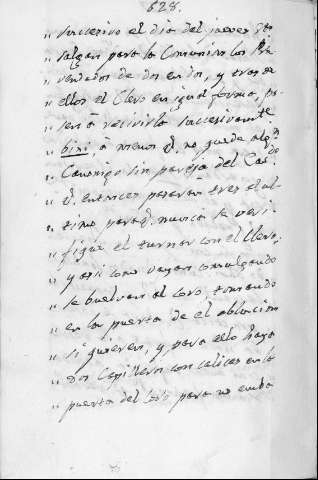 628.
" succesivo el dia del jueves S.to
" salgan para la Comunion los Pre
" vendados de dos en dos, y tras de
" ellos el Clero en igual forma, pa
" sen á recivirla succesivam.te
" bini, a menos q. no quede algn
" Canonigo sin pareja del Cavdo
" q. entonces pasarán tres el ul
" timo para q. nunca se veri
" fique el turnar con el Clero,
" y asi como vayan comulgando
" se buelvan al coro, tomando
" en la puerta de el ablucion
" si quieren, y para ello haya
" dos Capilleros con calices en la
" puerta del Coro para no emba